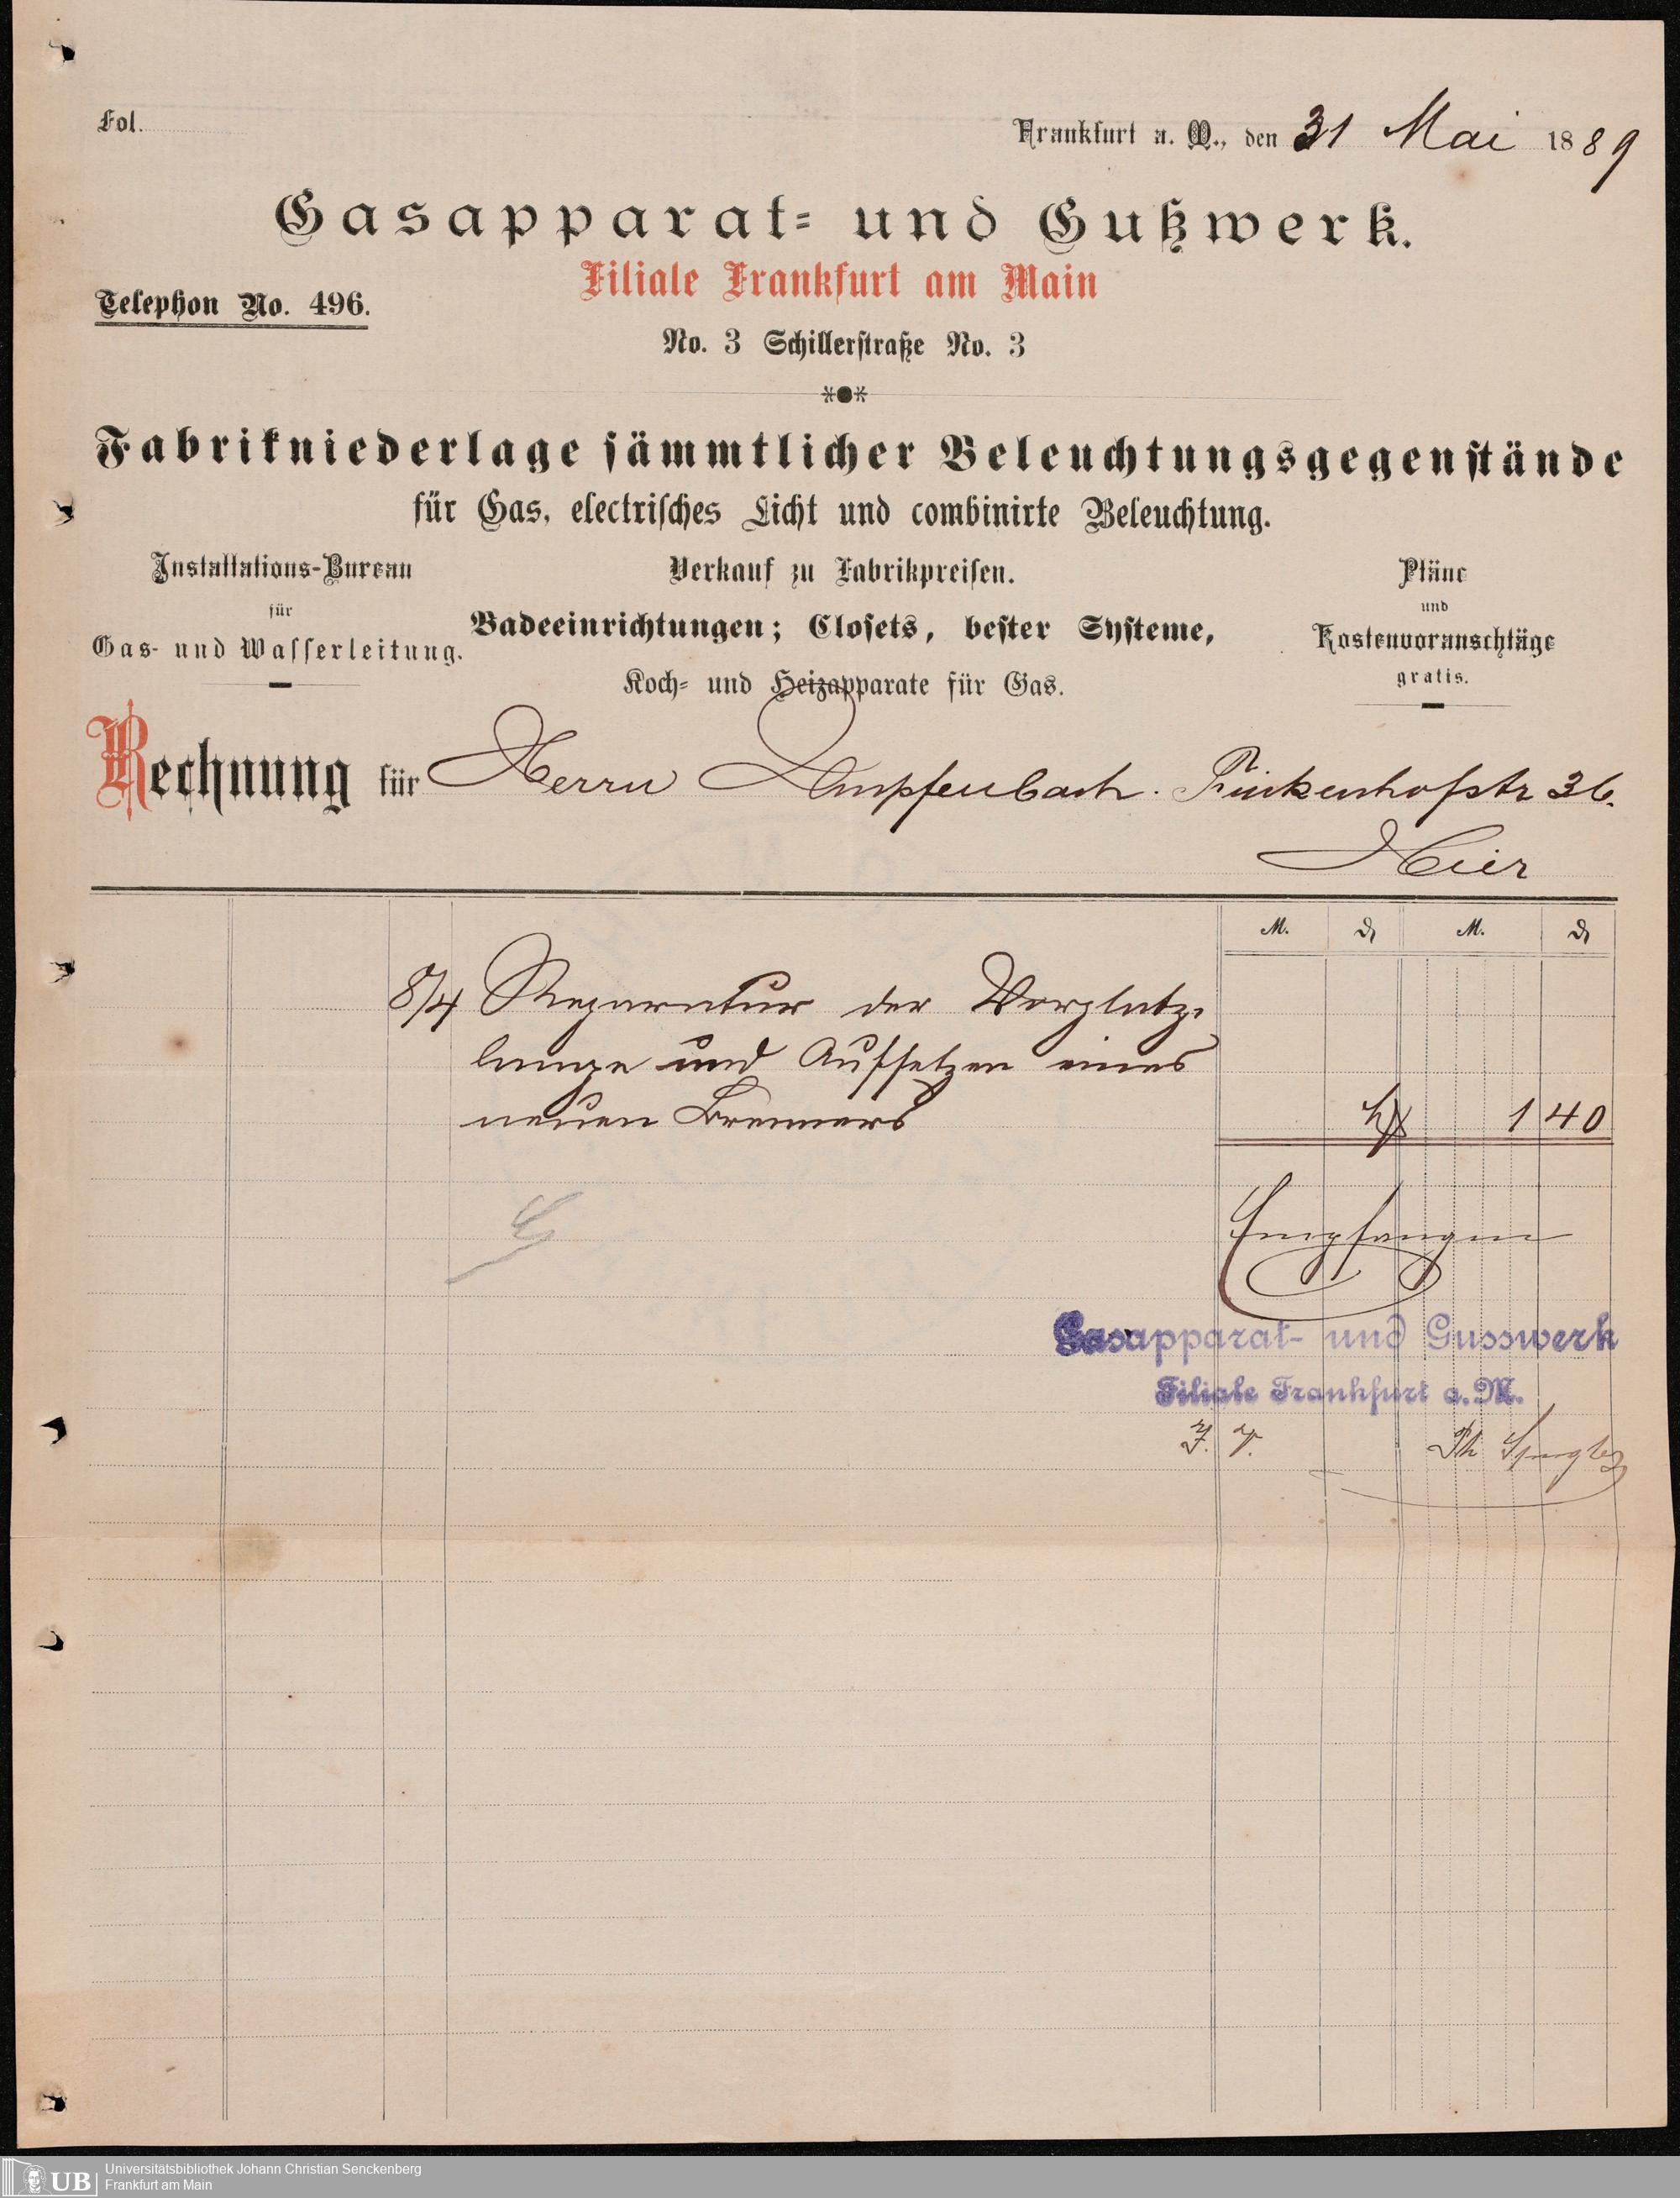 Fol.
Frankfurt a. M., den 31 Mai 1889
Gasapparat- und Gußwerk.
Filiale Frankfurt am Main
Telephon No. 496.
No. 3 Schillerstraße No. 3
Fabrikniederlage sämmtlicher Beleuchtungsgegenstände
für Gas, electrisches Licht und combinirte Beleuchtung.
Installations-Bureau
für
Gas- und Wasserleitung.
Verkauf zu Fabrikpreisen.
Badeeinrichtungen; Closets, bester Systeme,
Koch- und Heizapparate für Gas.
Pläne
und
Kostenvoranschläge
gratis.
Rechnung für Herrn Umpfenbach. 36.
Hier
M. ₰ M. ₰
8/4 Reparatur der Vorplatz-
lampe und Aufsetzen eines
neuen Brenners 1 40
Empfangen
Gasapparat- und Gusswerk
Filiale Frankfurt a. M.
UB Universitätsbibliothek Johann Christian Senckenberg
Frankfurt am Main